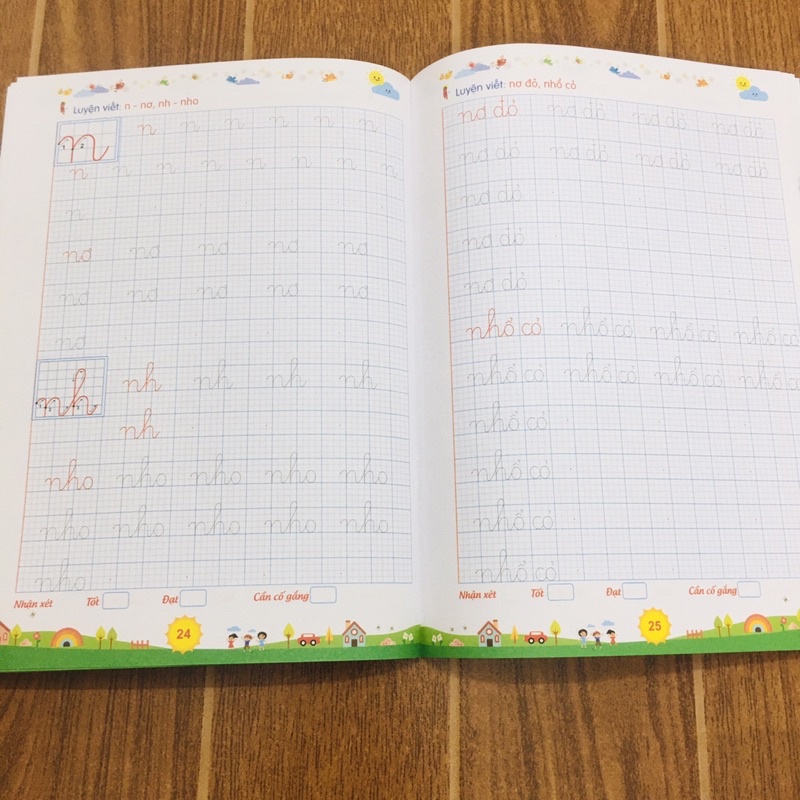 Luyện viết: n - nơ, nh - nho
n n n n n n n
1 2
n n n n n n n n
n
nơ nơ nơ nơ nơ
nơ nơ nơ nơ nơ
nơ
nh nh nh nh nh
nh
nho nho nho nho nho
nho nho nho nho nho
nho
Nhận xét Tốt Đạt Cần cố gắng
24
Luyện viết: nơ đỏ, nhổ cỏ
nơ đỏ nơ đỏ nơ đỏ nơ đỏ
nơ đỏ nơ đỏ nơ đỏ nơ đỏ
nơ đỏ
nơ đỏ
nơ đỏ
nhổ cỏ nhổ cỏ nhổ cỏ nhổ cỏ
nhổ cỏ nhổ cỏ nhổ cỏ nhổ cỏ
nhổ cỏ
nhổ cỏ
nhổ cỏ
nhổ cỏ
Nhận xét Tốt Đạt Cần cố gắng
25